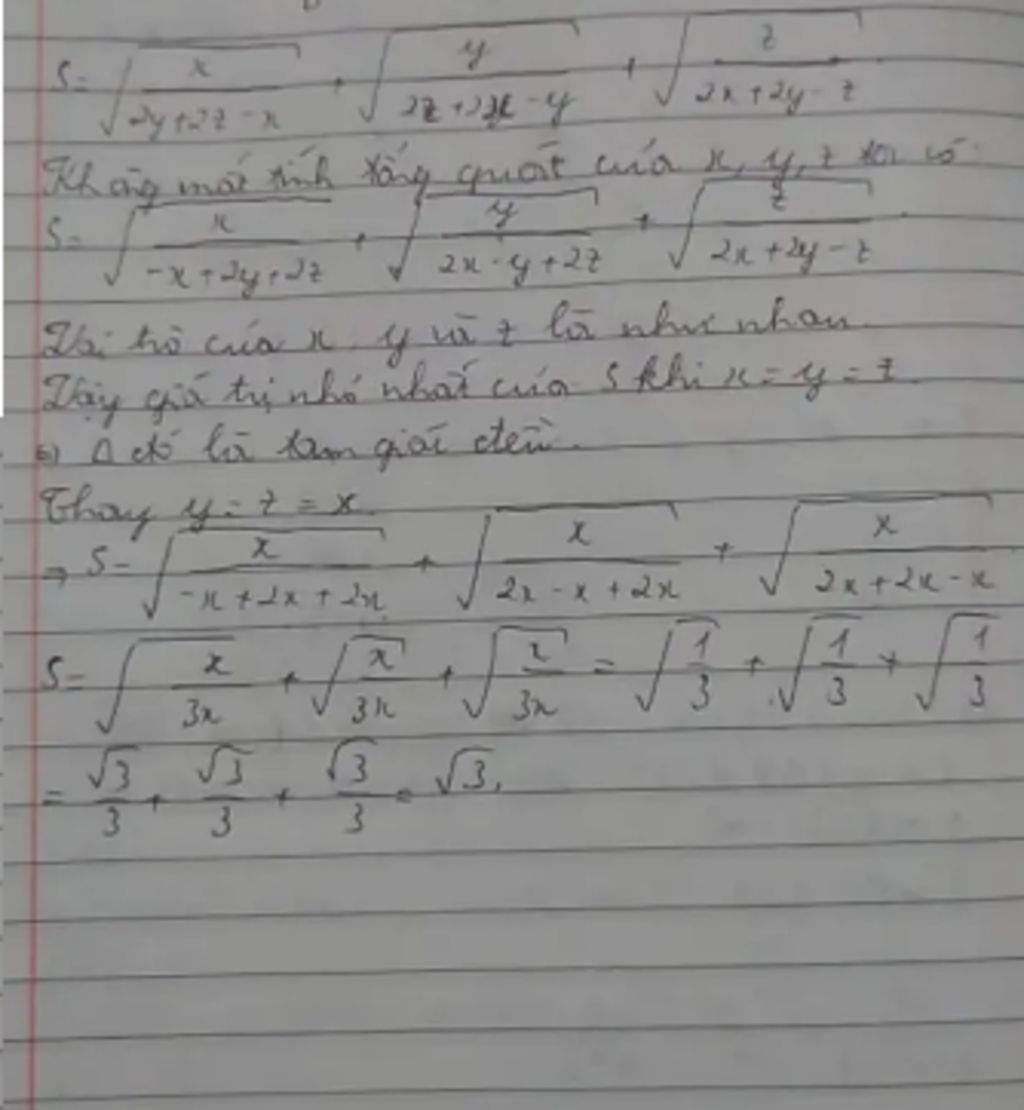 S = √(x/(2y+2z-x)) + √(y/(2z+2x-y)) + √(z/(2x+2y-z))
Không mất tính tổng quát của x, y, z ta có
S = √(x/(-x+2y+2z)) + √(y/(2x-y+2z)) + √(z/(2x+2y-z))
Vai trò của x, y và z là như nhau.
Vậy giá trị nhỏ nhất của S khi x = y = z
Δ đó là tam giác đều.
Thay y = z = x
→ S = √(x/(-x+2x+2x)) + √(x/(2x-x+2x)) + √(x/(2x+2x-x))
S = √(x/3x) + √(x/3x) + √(x/3x) = √(1/3) + √(1/3) + √(1/3)
= √3/3 + √3/3 + √3/3 = √3.